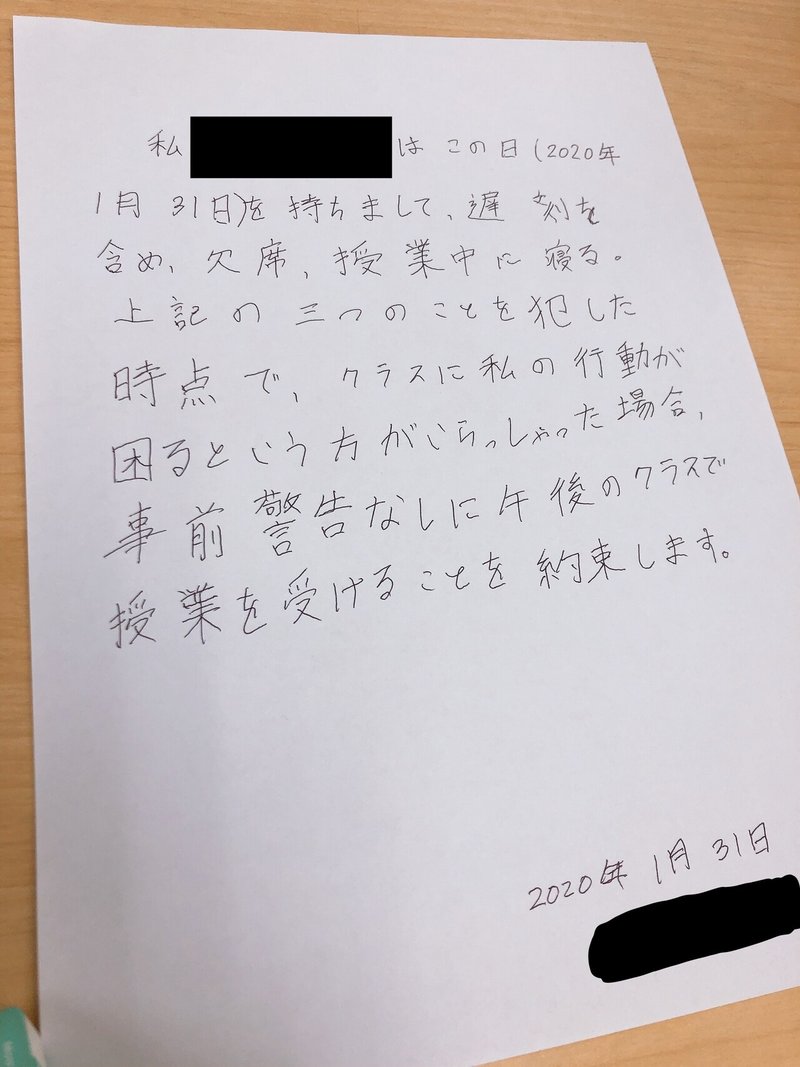 私 は この日(2020年
1月 31日)を 持ちまして、遅刻を
含め、欠席、授業中に 寝る。
上記の 三つのことを犯した
時点で、クラスに私の行動が
困るという方がいらっしゃった場合、
事前警告なしに午後のクラスで
授業を受けることを約束します。
2020年 1月 31日